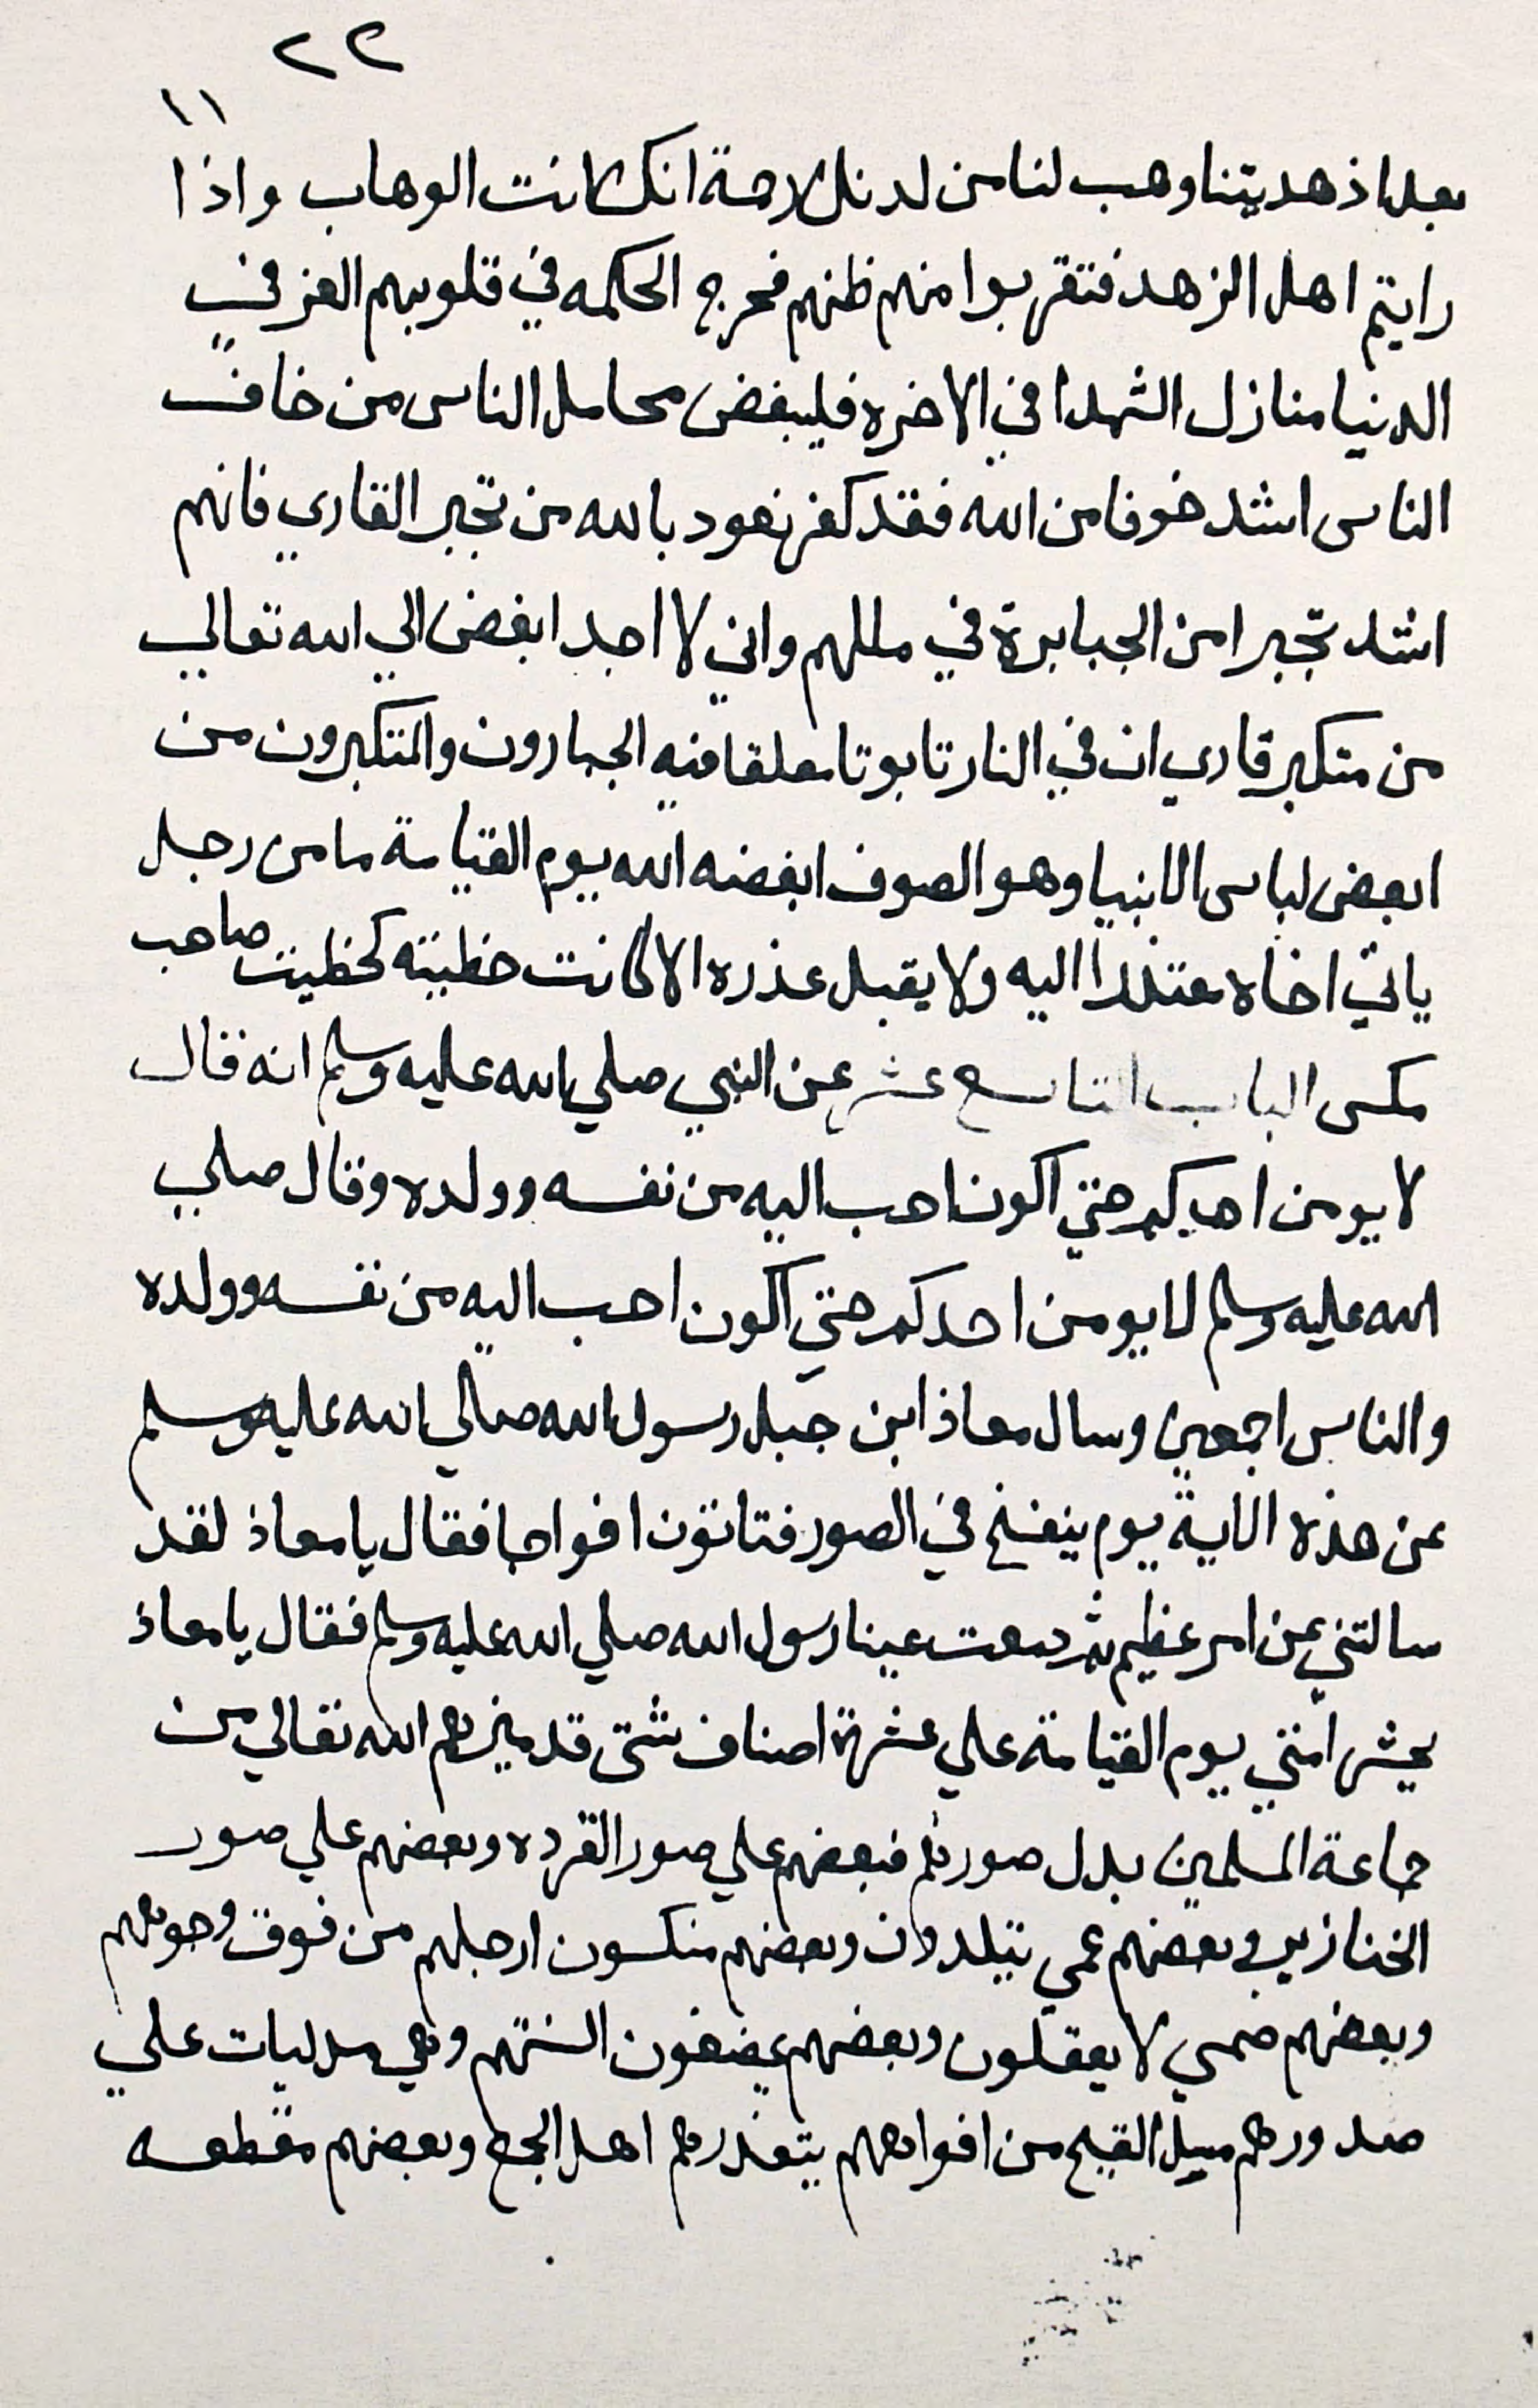 ٢٢
١١
بعد اذ هديتنا وهب لنا من لدنك رحمة انك انت الوهاب واذا
رايتم اهل الزهد فتقربوا منهم ظنهم فحرج الحكمه في قلوبهم العز في
الدنيا منازل الشهدا في الاخره فليبغض محاسل الناس من خاف
الناس اشد خوفا من الله فقد كفر نعود بالله من تجبر القاري فانهم
اشد تجبرا من الجبابرة في مللهم واني لا اجد ابغض الي الله تعالي
من متكبر قاري ان في النار تابوتا معلقا فيه الجبارون والمتكبرون من
ابعض لباس الانبيا وهو الصوف ابغضه الله يوم القيامة ما من رجل
ياتي اخاه معتذرا اليه ولا يقبل عذره الا كانت خطيته كخطيت صاحب
مكس الباب التاسع عشر عن النبي صلي الله عليه وسلم انه قال
لا يومن احدكم حتي اكون احب اليه من نفسه وولده وقال صلي
الله عليه وسلم لا يومن احدكم حتي اكون احب اليه من نفسه وولده
والناس اجمعين وسال معاذ ابن جبل رسول الله صلي الله عليه وسلم
عن هذه الاية يوم ينفخ في الصور فتاتون افواجا فقال يا معاذ لقد
سالتني عن امر عظيم ثم دمعت عينا رسول الله صلي الله عليه وسلم فقال يا معاذ
يحشر امتي يوم القيامة علي عشرة اصناف شتي قد ميزهم الله تعالي من
جماعة المسلمين بدل صورتهم فبعضهم علي صور القرده وبعضهم علي صور
الخنازير وبعضهم عمي يتبلدون وبعضهم منكسون ارجلهم من فوق وجوههم
وبعضهم صمي لا يعقلون وبعضهم يمضغون السنتهم وهي مدليات علي
صدورهم يسيل القيح من افواههم يتقذرهم اهل الجمع وبعضهم مقطعه